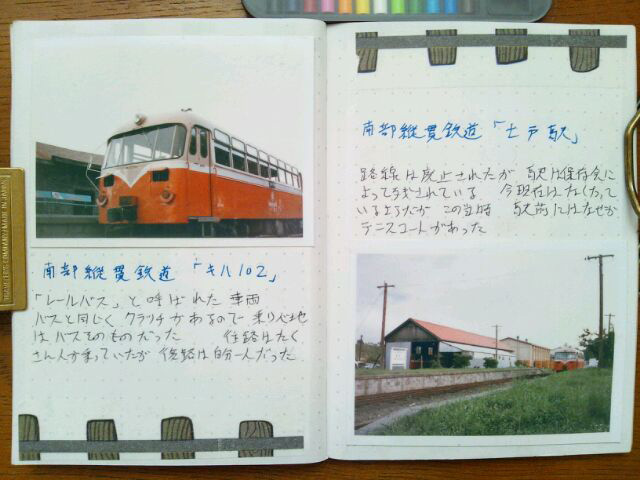 南部縦貫鉄道 「キハ102」
「レールバス」と呼ばれた車両
バスと同じく クラッチがあるので 乗り心地
はバスそのものだった 往路はたく
さん人が乗っていたが 復路は自分一人だった
南部縦貫鉄道「七戸駅」
路線は廃止されたが 駅は保存会に
よって残されている 今現在はなくなって
いるようだが この当時 駅前にはなぜか
テニスコートがあった
TRAVELER'S COMPANY MADE IN JAPAN